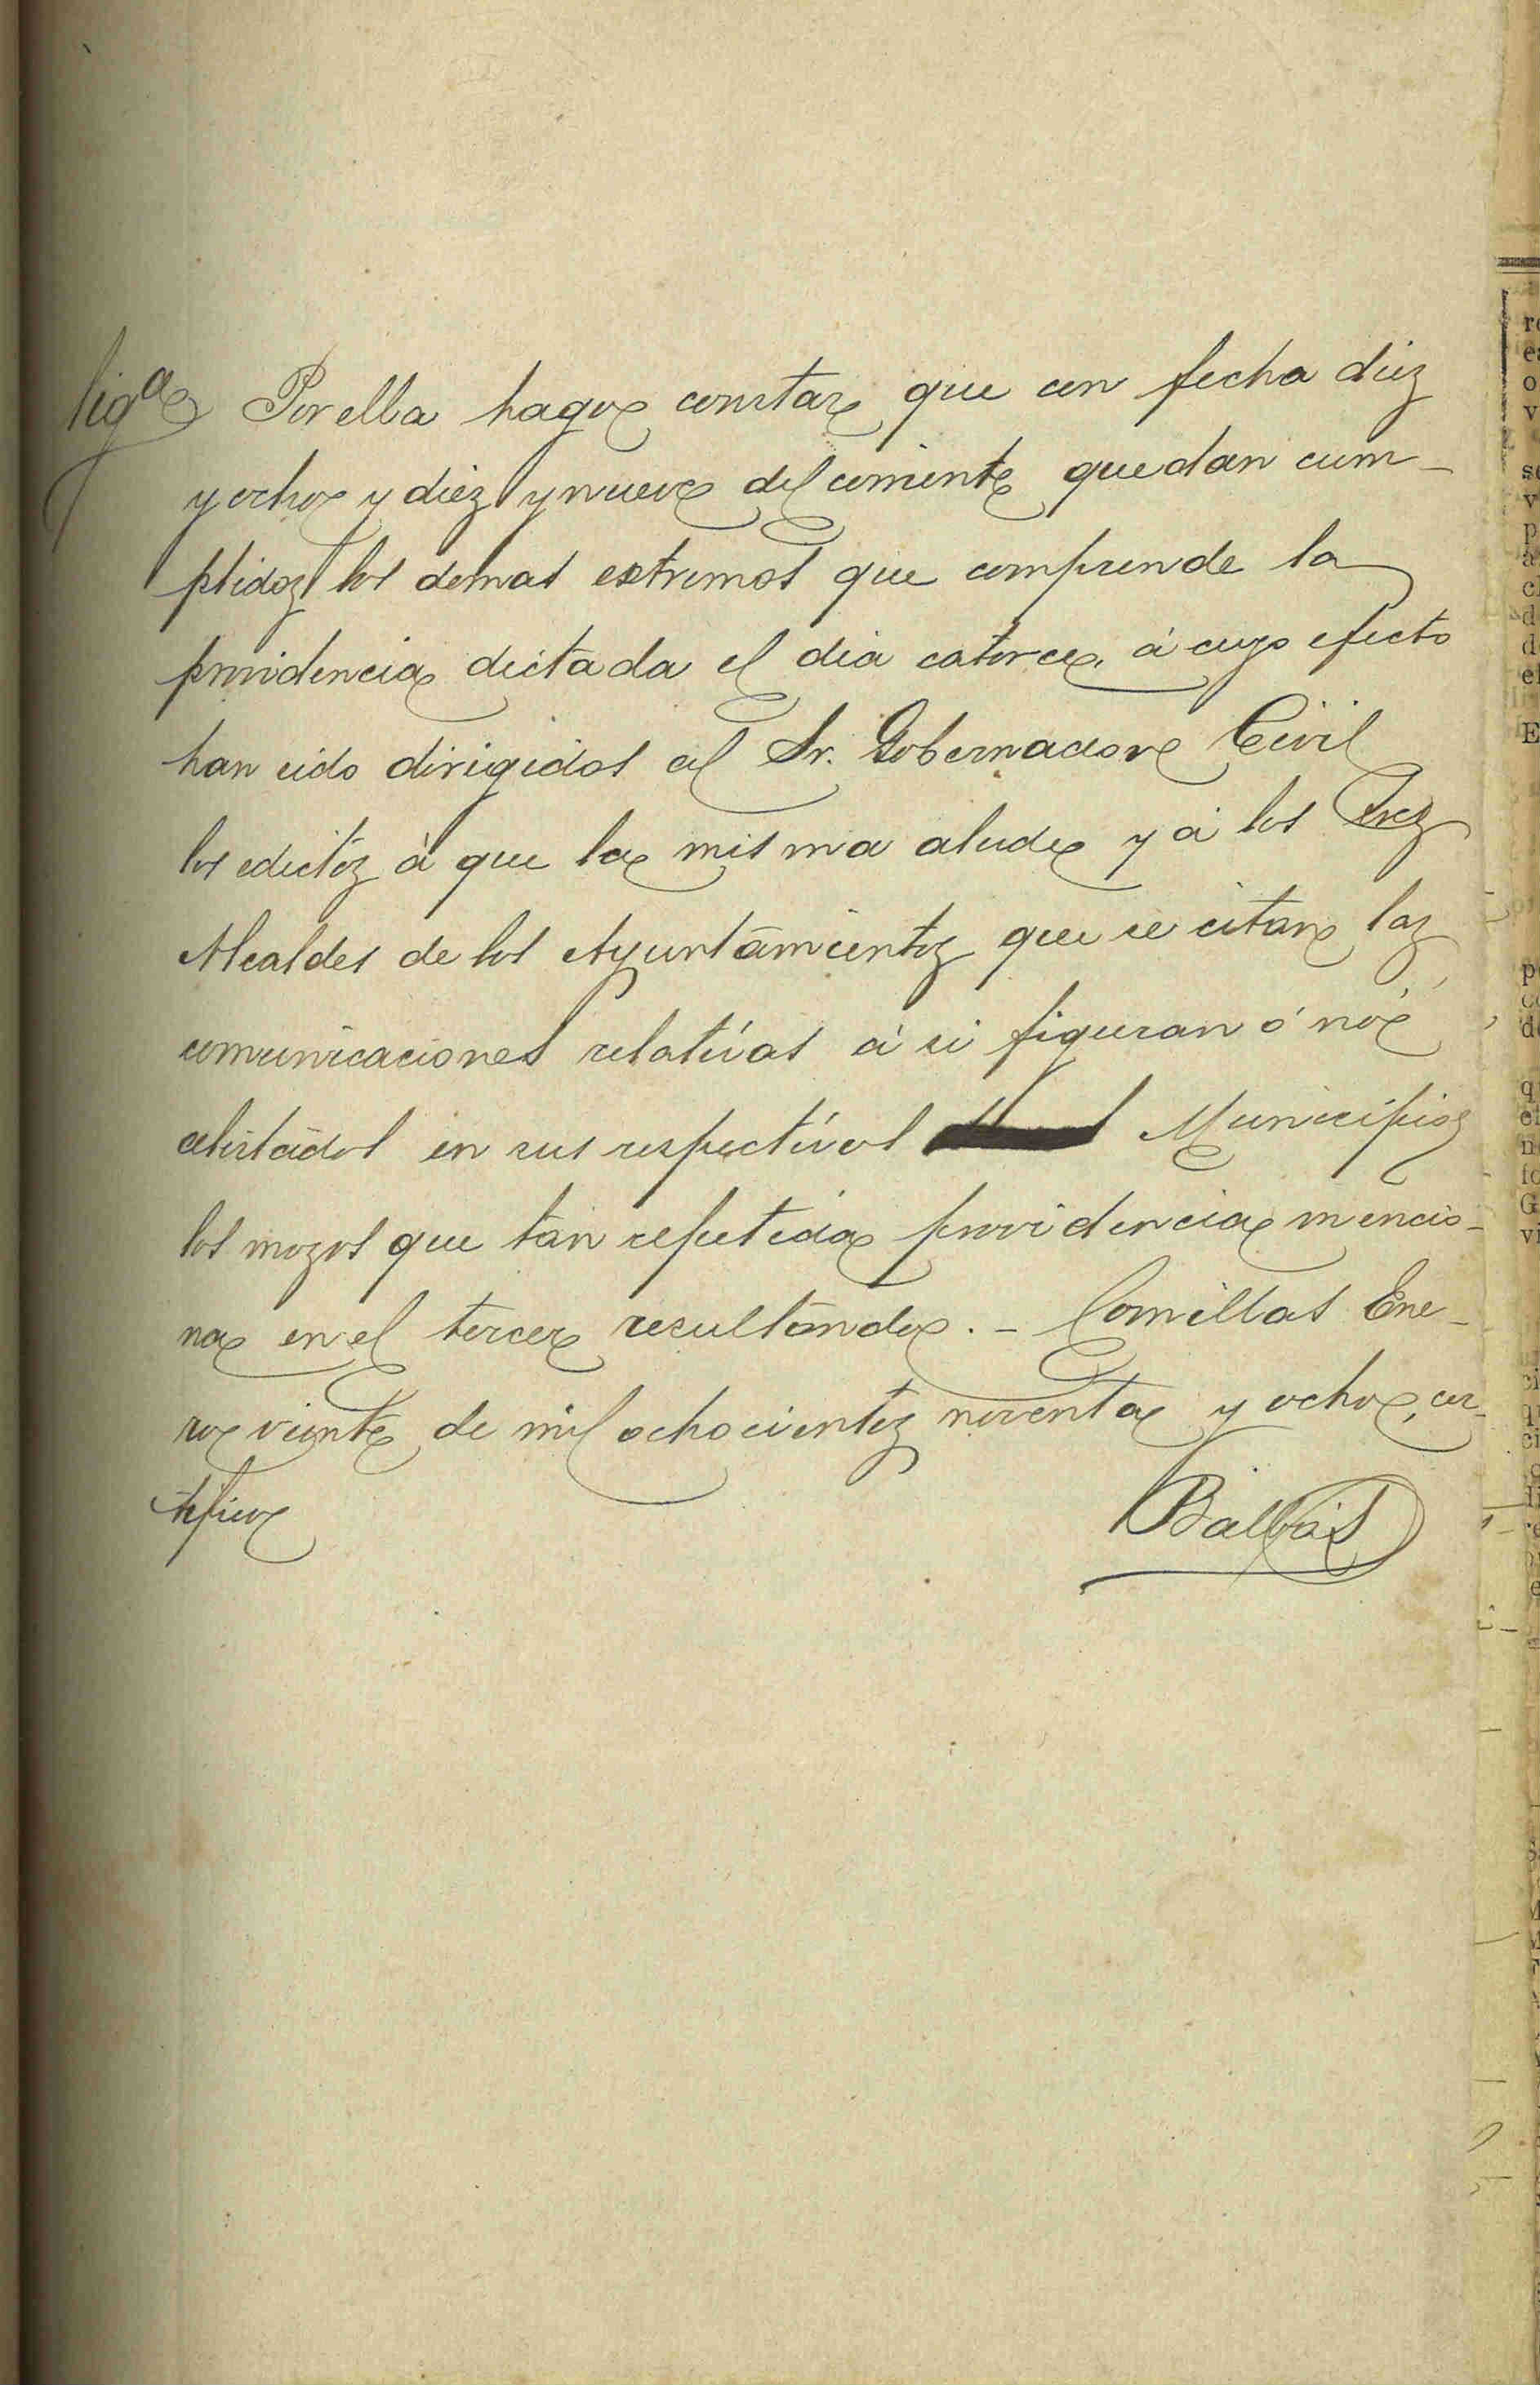 Diga Por ella hago constar que con fecha diez
y ocho y diez y nueve del corriente quedan cum-
plidos los demas estremos que comprende la
providencia dictada el dia catorce, á cuyo efecto
han sido dirigidos al Sr. Gobernador Civil
los edictos á que la misma alude y á los Sres
Alcaldes de los Ayuntamientos que se citan las
comunicaciones relativas á si figuran ó nó
alistados en sus respectivos Municipios
los mozos que tan repetida providencia mencio-
na en el tercer resultando. - Comillas Ene-
ro veinte de mil ochocientos noventa y ocho, cer-
tifico
Balbás